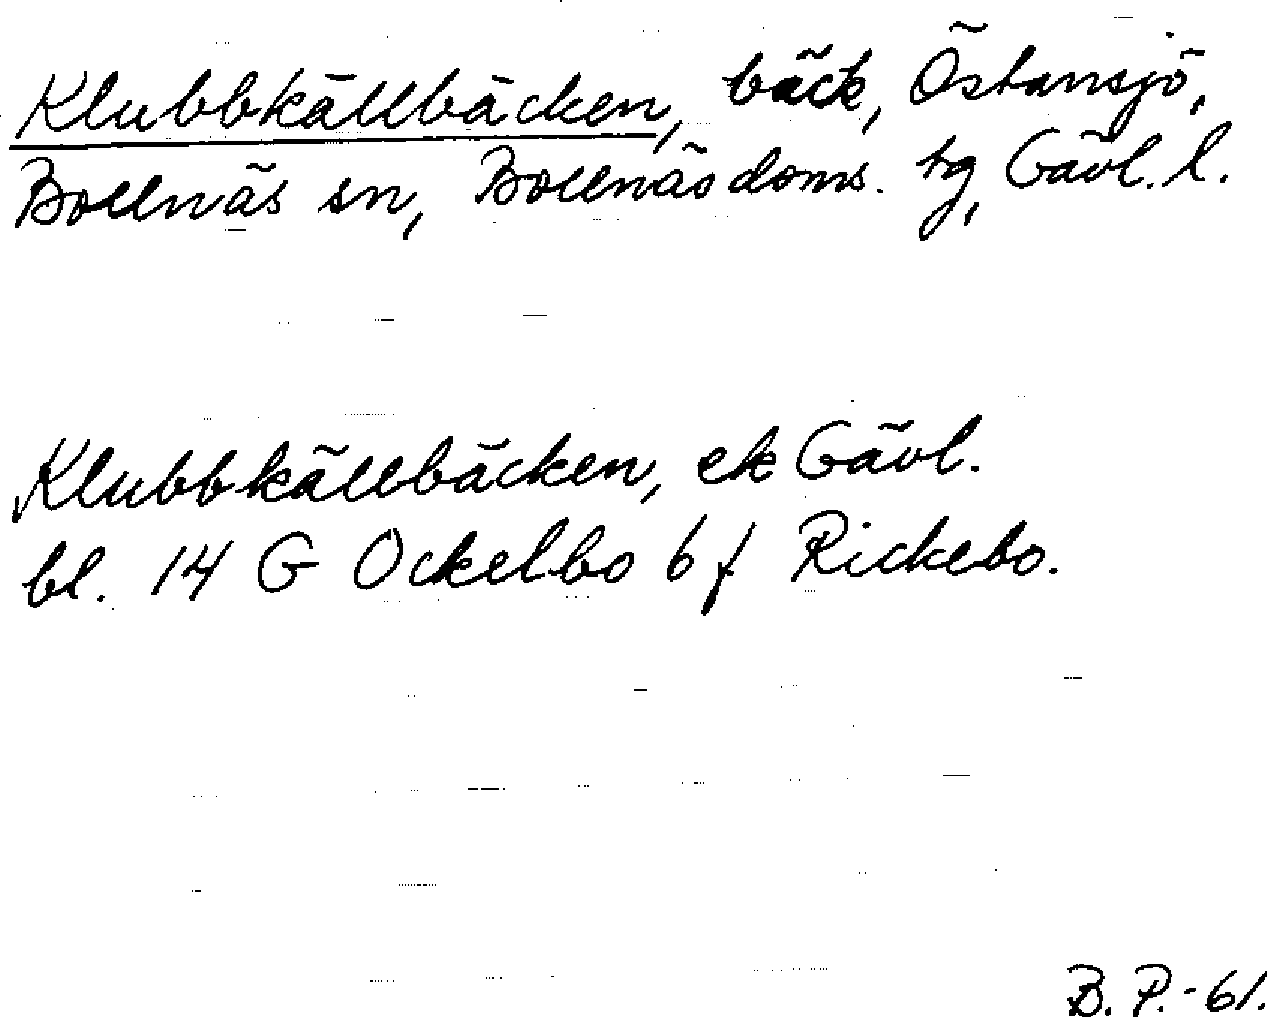 Klubbkällbäcken, bäck, Östansjö,
Bollnäs sn, Bollnäs doms. tg, Gävl. l.
Klubbkällbäcken, ek Gävl.
bl. 14 G Ockelbo 6 f Rickebo.
B. P. - 61.